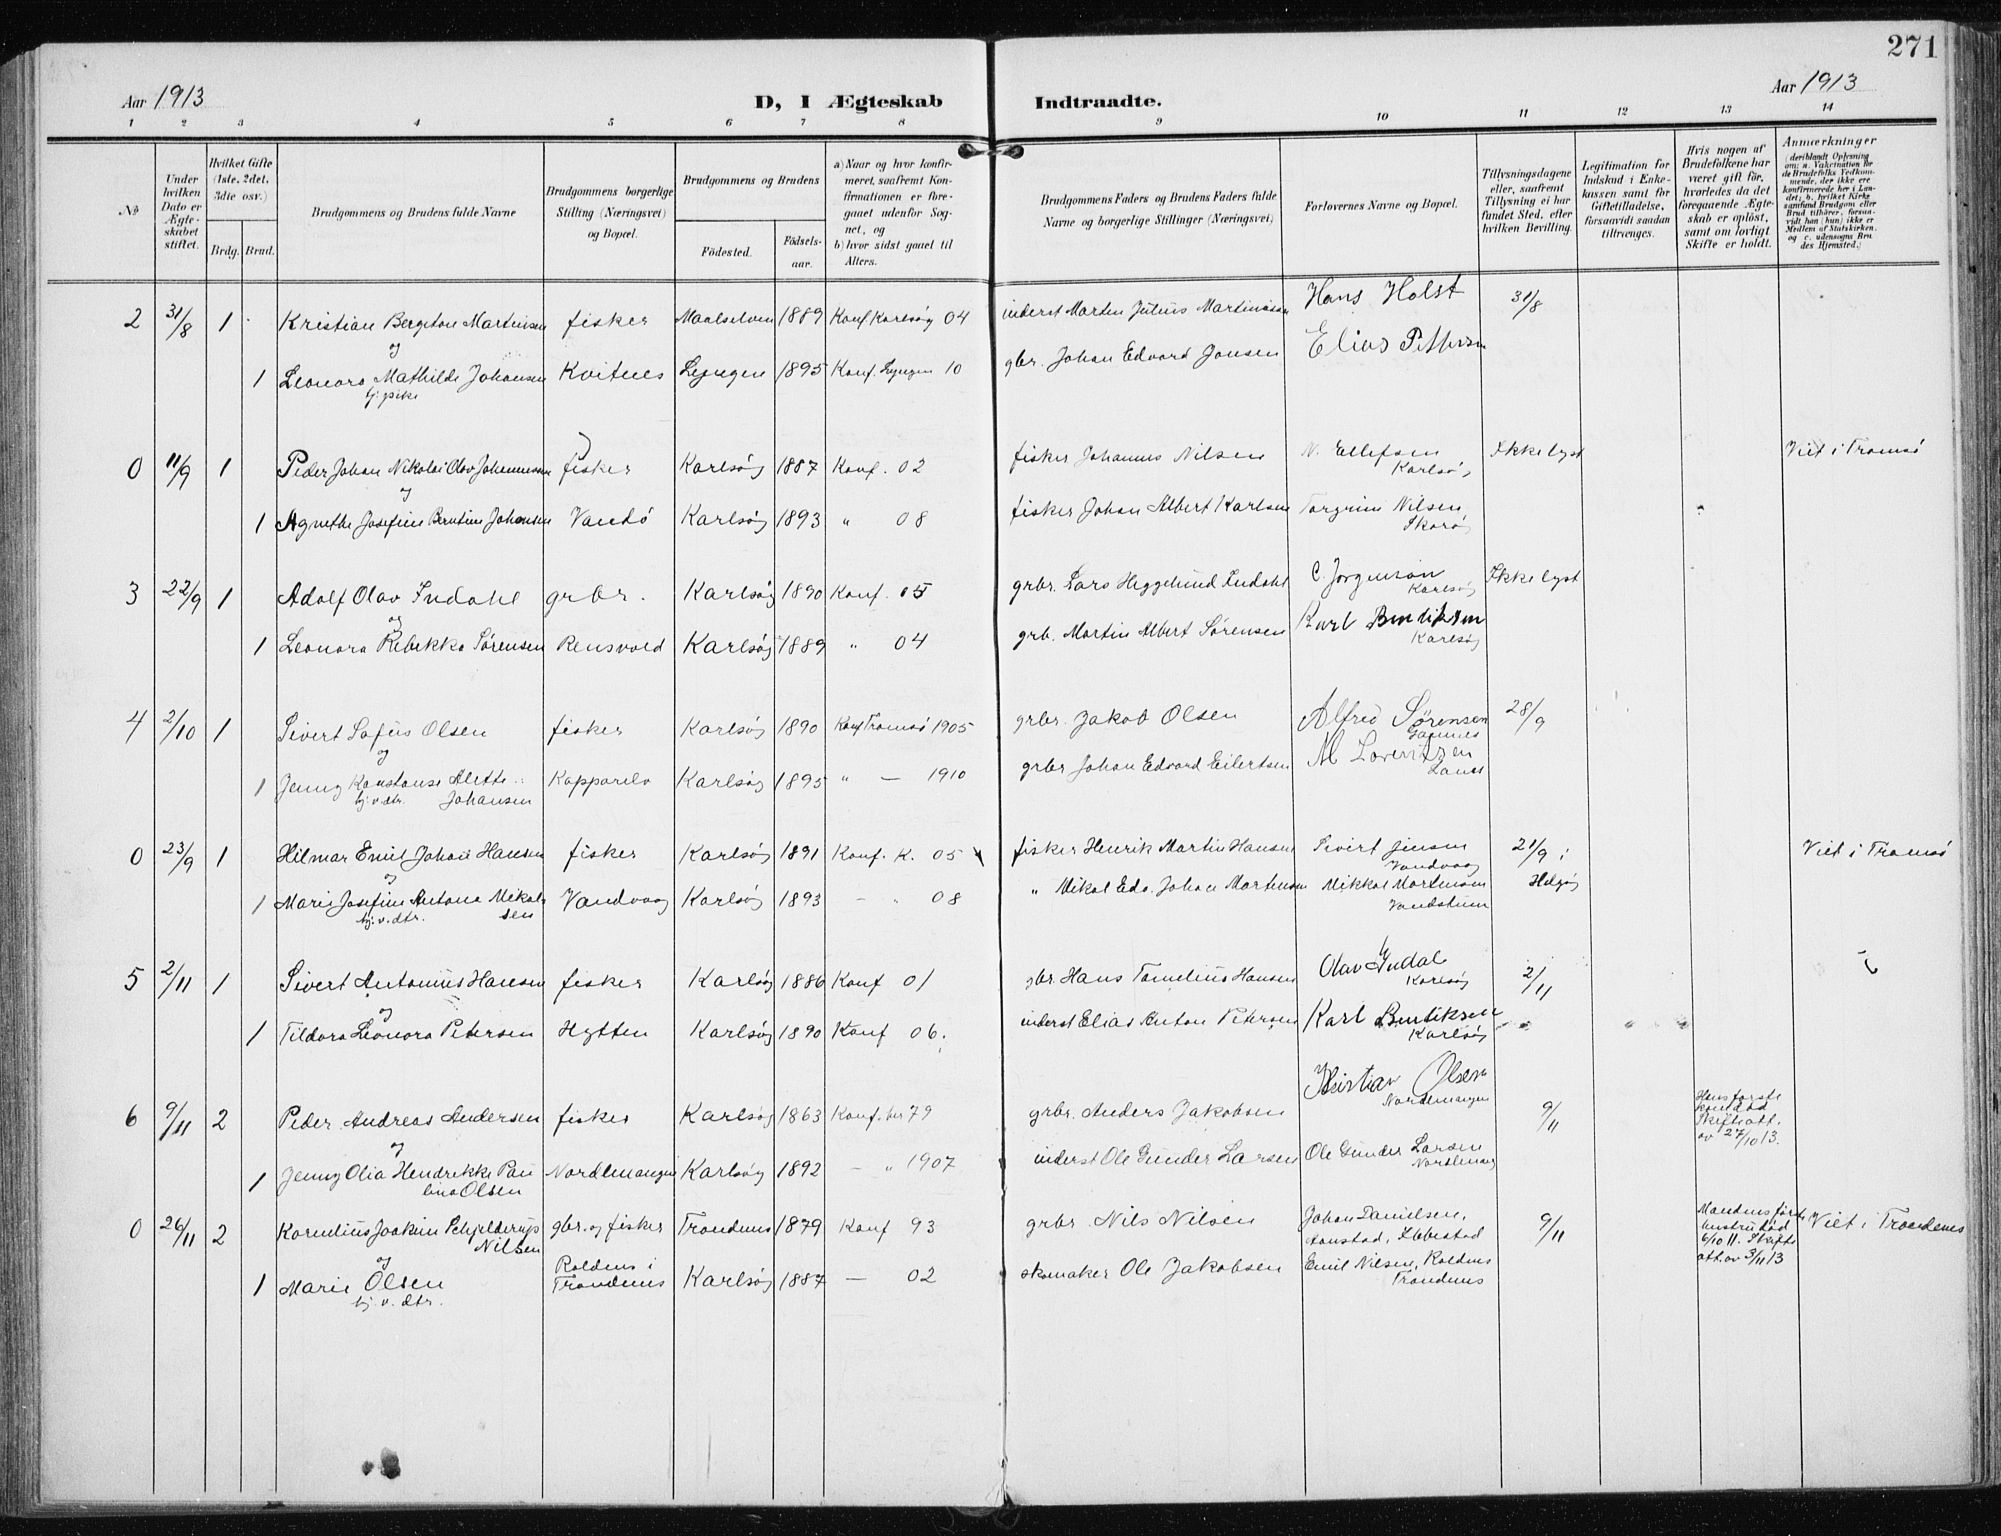 271
Aar 1913
D, I Ægteskab Indtraadte.
Aar 1913
1 2 3 4 5 6 7 8 9 10 11 12 13 14
No
Under hvilken Dato er Ægteskabet stiftet.
Hvilket Gifte (1ste, 2det, 3die osv.)
Brdg. Brud.
Brudgommens og Brudens fulde Navne
Brudgommens borgerlige Stilling (Næringsvei) og Bopæl.
Brudgommens og Brudens
Födested. Födselsaar.
a) Naar og hvor konfirmeret, saafremt Konfirmationen er foregaaet udenfor Sognet, og
b) hvor sidst gaaet til Alters.
Brudgommens Faders og Brudens Faders fulde Navne og borgerlige Stillinger (Næringsvei)
Forlovernes Navne og Bopæl.
Tillysningsdagene eller, saafremt Tillysning ei har fundet Sted, efter hvilken Bevilling.
Legitimation for Indskud i Enkekassen samt for Giftetilladelse, forsaavidt saadan tiltrænges.
Hvis nogen af Brudefolkene har været gift för, hvorledes da det foregaaende Ægteskab er oplöst, samt om lovligt Skifte er holdt.
Anmærkninger
(deriblandt Oplysning om: a. Vakcination for de Brudefolks Vedkommende, der ikke ere konfirmerede her i Landet; b. hvilket Kirkesamfund Brudgom eller Brud tilhörer, forsaavidt han (hun) ikke er Medlem af Statskirken, og c. udensogns Brudes Hjemsted.)
2 31/8 1 Kristian Bergiton Martinsen fisker Maalselven 1889 Konf Karlsöy 04 inderst Martin Julius Martinsen Hans Holst 31/8
og
1 Leonora Mathilde Johansen Kvitnes Lyngen 1895 Konf. Lyngen 10 gbr. Johan Edvard Jonsen Elias Pettersen
tj. pike
0 11/9 1 Peder Johan Nikolai Olav Johannessen fisker Karlsöy 1887 Konf. 02 fisker Johannes Nilsen N. Ellefsen Karlsöy Ikke lyst Viet i Tromsö
og
1 Agnethe Josefine Berntine Johansen Vandö Karlsöy 1893 " 08 fisker Johan Albert Karlsen Torgrim Nilsen Skarö
3 22/9 1 Adolf Olav Indahl grbr. Karlsöy 1890 Konf. 05 grbr. Lars Heggelund Indahl C. Jørgensen Karlsöy Ikke lyst
og
1 Leonora Rebekka Sørensen Rensvold Karlsöy 1889 " 04 grb. Martin Albert Sørensen Karl Bendiksen Karlsöy
4 2/10 1 Sivert Sofus Olsen fisker Karlsöy 1890 Konf Tromsö 1905 grbr. Jakob Olsen Alfred Sørensen 28/9
og
1 Jenny Konstanse Alette Johansen Karlsöy 1895 " — 1910 grbr Johan Edvard Eilertsen M Lorentzen
tj. v. dtr.
0 23/9 1 Hilmar Emil Johan Hansen fisker Karlsöy 1891 Konf. K. 05 fisker Henrik Martin Hansen Sivert Jensen Vandvaag 21/9 i Helgöy Viet i Tromsö
og
1 Marie Josefine Antona Mikalsen Vandvaag Karlsöy 1893 — " 08 " Mikal Edv. Johan Martinsen Mikkal Mortensen
tj. v. dtr.
5 2/11 1 Sivert Antonius Hansen fisker Karlsöy 1886 Konf 01 gbr. Hans Tomelius Hansen Olav Indal Karlsöy 2/11
og
1 Tildora Leonora Petersen Hytten Karlsöy 1890 Konf 06. inderst Elias Anton Petersen Karl Bendiksen Karlsöy
6 9/11 2 Peder Andreas Andersen fisker Karlsöy 1863 Konf. her 79 grbr. Anders Jakobsen Kristian Olsen Nordlenangen 9/11 Hans første kone död Skifteatt. av 27/10 13.
og
1 Jenny Olia Hendrikke Paulina Olsen Nordlenangen Karlsöy 1892 — " 1907 inderst Ole Gunder Larsen Ole Gunder Larsen Nordlenang
0 26/11 2 Kornelius Joakim Schjelderup Nilsen gbr. og fisker Trondenes 1879 Konf 93 grbr. Nils Nilsen Johan Danielsen, Aanstad, Ibbestad 9/11 Mandens første hustru död 6/10 11. Skifteatt. av 3/11 13 Viet i Trondenes
og
1 Marie Olsen Roldnes i Trondenes Karlsöy 1887 — 02 skomaker Ole Jakobsen Emil Nilsen, Roldnes Trondenes
tj. v. dtr.